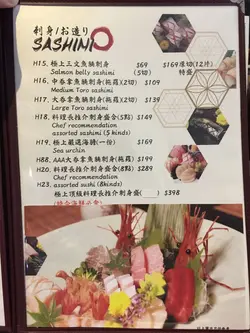 刺身/お造り
SASHIMI
H15. 極上三文魚腩刺身 $69 $169厚切(12片)
Salmon belly sashimi (5切) 特盛
H16. 中吞拿魚腩刺身(拖羅)(2切) $109
Medium Toro sashimi
H17. 大吞拿魚腩刺身(拖羅)(2切) $139
Large Toro sashimi
H18. 料理長推介刺身盛合(5點) $149
Chef recommendation
assorted sashimi (5 kinds)
H19. 極上嚴選海膽(一份) $169
Sea urchin
H88. AAA大吞拿魚腩刺身(拖羅) $199
H20. 料理長推介刺身盛合(8點) $289
Chef recommendation
H23. assorted sushi (8kinds)
極上頂級料理長推介刺身盛 $398